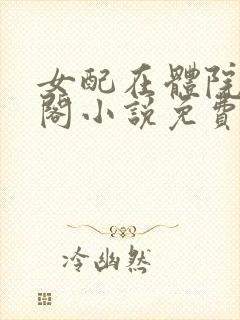 女配在體院
閣小說免費
冷幽然